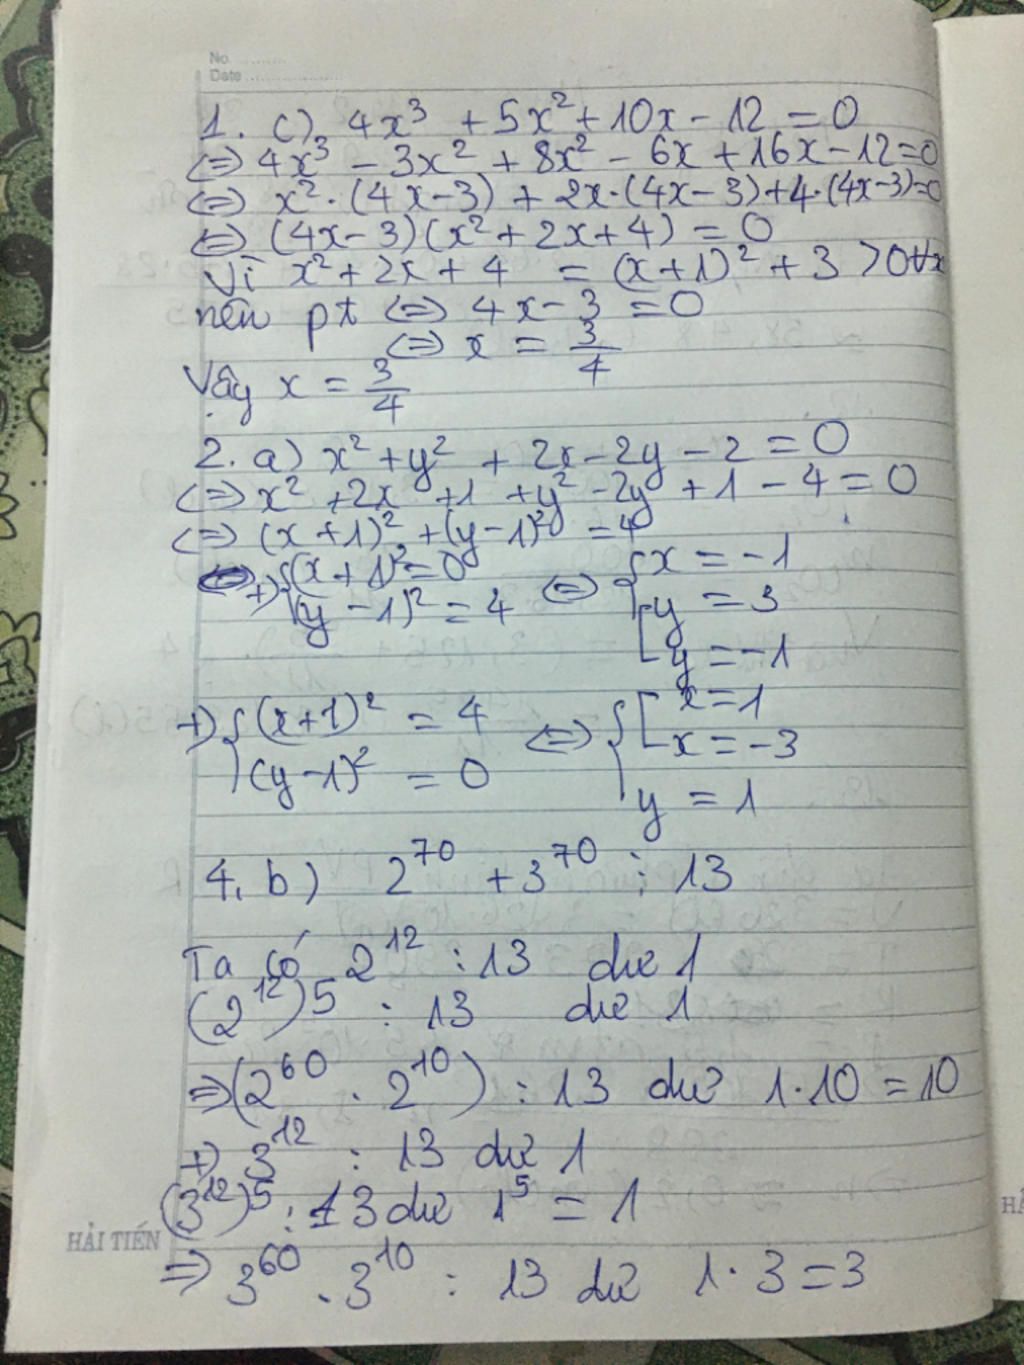 No. ............
Date .....................
1. c), 4x³ + 5x² + 10x - 12 = 0
⇔ 4x³ - 3x² + 8x² - 6x + 16x - 12 = 0
⇔ x² · (4x - 3) + 2x · (4x - 3) + 4 · (4x - 3) = 0
⇔ (4x - 3)(x² + 2x + 4) = 0
Vì x² + 2x + 4 = (x + 1)² + 3 > 0 ∀x
nên pt ⇔ 4x - 3 = 0
⇔ x = 3/4
Vậy x = 3/4
2. a) x² + y² + 2x - 2y - 2 = 0
⇔ x² + 2x + 1 + y² - 2y + 1 - 4 = 0
⇔ (x + 1)² + (y - 1)² = 4
+) { (x + 1)² = 0 ⇔ { x = -1
(y - 1)² = 4 [ y = 3
y = -1
+) { (x + 1)² = 4 ⇔ { [ x = 1
x = -3
(y - 1)² = 0 y = 1
4. b) 2⁷⁰ + 3⁷⁰ ⋮ 13
Ta có 2¹² : 13 dư 1
(2¹²)5 : 13 dư 1
⇒ (2⁶⁰ · 2¹⁰) : 13 dư 1 · 10 = 10
+) 3¹² : 13 dư 1
(3¹²)⁵ : 13 dư 1⁵ = 1
⇒ 3⁶⁰ . 3¹⁰ : 13 dư 1 · 3 = 3
HẢI TIẾN
HẢ